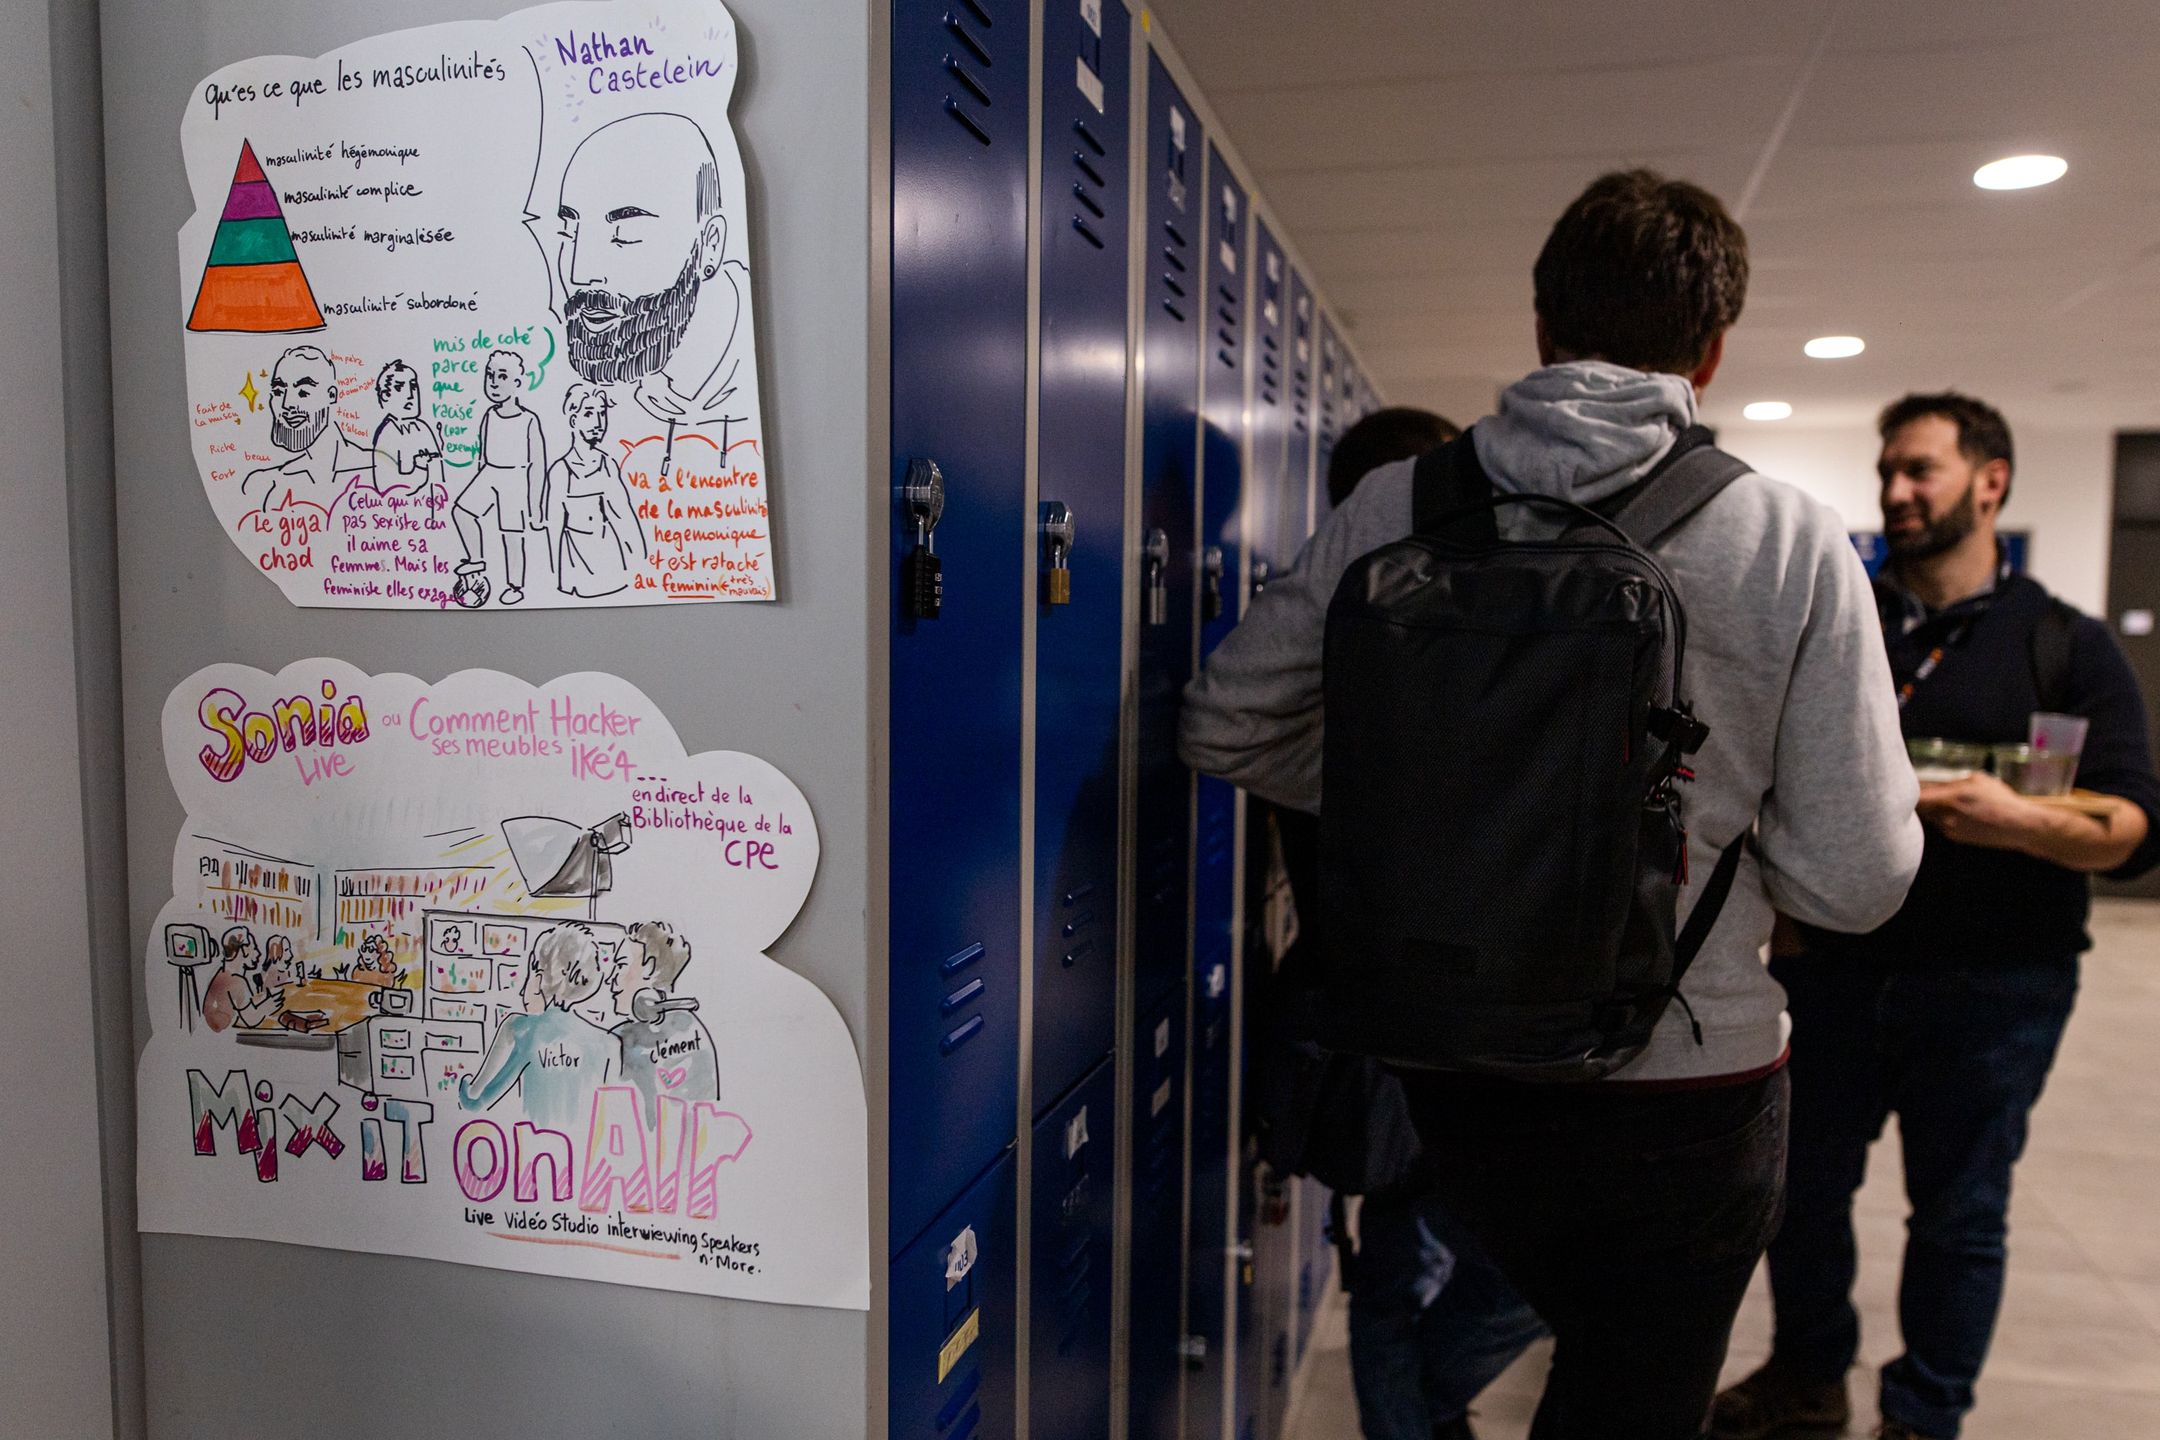 Qu'es ce que les masculinités
Nathan
Castelein
masculinité hégémonique
masculinité complice
masculinité marginalisée
masculinité subordoné
mis de coté
parce
que
racisé
(par
exemple
bon père
mari
dominant
tient
l'alcool
fait de
la muscu
Riche
beau
Fort
Le giga
chad
Celui qui n'est
pas sexiste car
il aime sa
femmes. Mais les
feministe elles exage
va à l'encontre
de la masculinité
hegemonique
et est rataché
au feminin (← très
mauvais)
Sonia
Live
ou Comment Hacker
ses meubles
iké4...
en direct de la
Bibliothèque de la
CPE
Victor
clément
Mix iT
on Air
Live Vidéo Studio interviewing Speakers
n' More.
1103